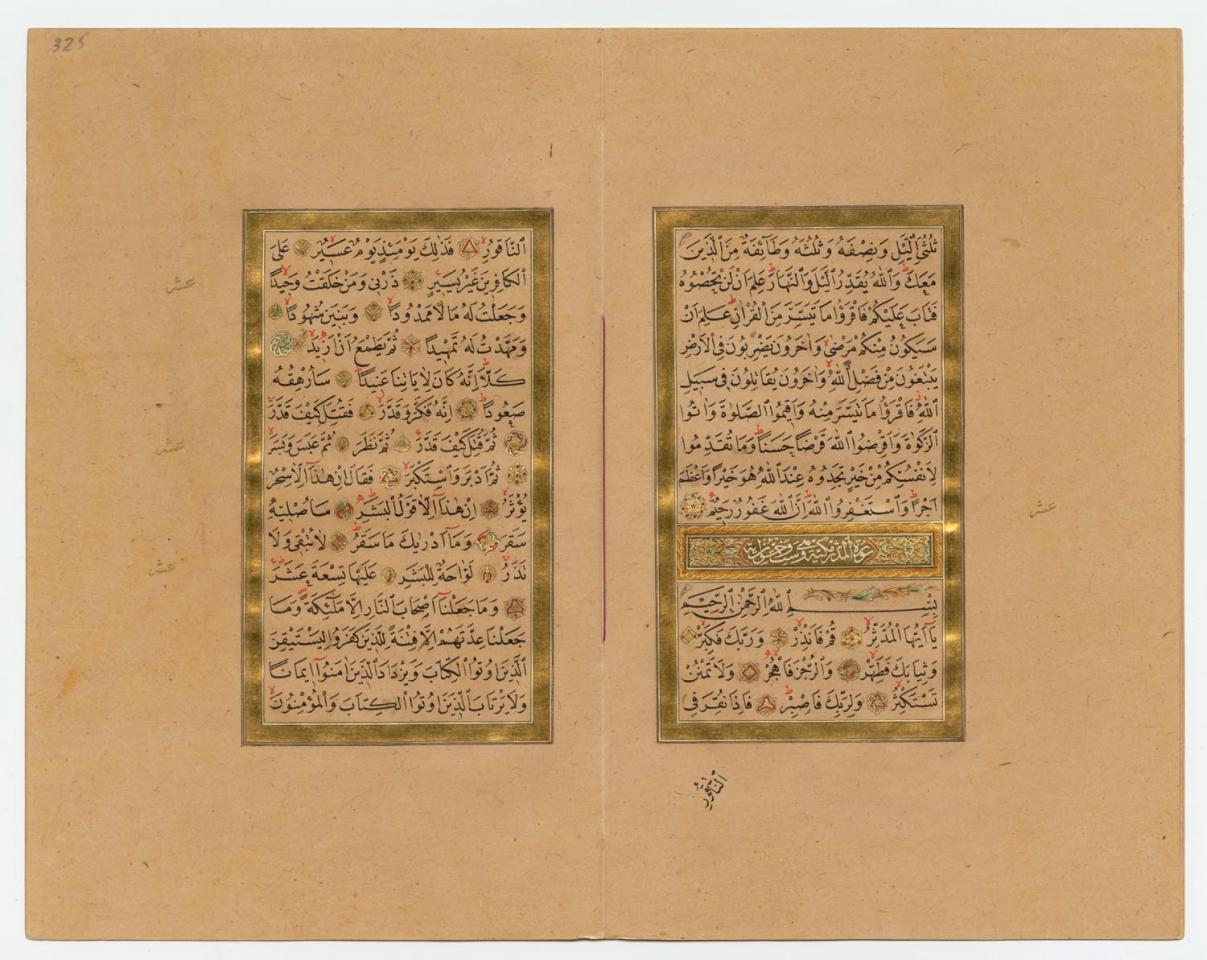 ثُلُثَيِ الَّيْلِ وَنِصْفَهُ وَثُلُثَهُ وَطَآئِفَةٌ مِنَ الَّذِينَ
مَعَكَ وَاللهُ يُقَدِّرُ الَّيْلَ وَالنَّهَارَ عَلِمَ اَنْ لَنْ تُحْصُوهُ
فَتَابَ عَلَيْكُمْ فَاقْرَؤُا مَا تَيَسَّرَ مِنَ الْقُرْاٰنِ عَلِمَ اَنْ
سَيَكُونُ مِنْكُمْ مَرْضٰى وَاٰخَرُونَ يَضْرِبُونَ فِى الْاَرْضِ
يَبْتَغُونَ مِنْ فَضْلِ اللهِ وَاٰخَرُونَ يُقَاتِلُونَ فِى سَبِيلِ
اللهِ فَاقْرَؤُا مَا تَيَسَّرَ مِنْهُ وَاَقِيمُوا الصَّلٰوةَ وَاٰتُوا
الزَّكٰوةَ وَاَقْرِضُوا اللهَ قَرْضًا حَسَنًا وَمَا تُقَدِّمُوا
لِاَنْفُسِكُمْ مِنْ خَيْرٍ تَجِدُوهُ عِنْدَ اللهِ هُوَ خَيْرًا وَاَعْظَمَ
اَجْرًا وَاسْتَغْفِرُوا اللهَ اِنَّ اللهَ غَفُورٌ رَحِيمٌ
سورة المدثر مكية وهي ست وخمسون اية
بِسْمِ اللهِ الرَّحْمٰنِ الرَّحِيمِ
يَآ اَيُّهَا الْمُدَّثِّرُ قُمْ فَاَنْذِرْ وَرَبَّكَ فَكَبِّرْ
وَثِيَابَكَ فَطَهِّرْ وَالرُّجْزَ فَاهْجُرْ وَلَا تَمْنُنْ
تَسْتَكْثِرُ وَلِرَبِّكَ فَاصْبِرْ فَاِذَا نُقِرَ فِى
النَّاقُورِ
عشر
النَّاقُورِ فَذٰلِكَ يَوْمَئِذٍ يَوْمٌ عَسِيرٌ عَلَى
الْكَافِرِينَ غَيْرُ يَسِيرٍ ذَرْنِى وَمَنْ خَلَقْتُ وَحِيدًا
وَجَعَلْتُ لَهُ مَالًا مَمْدُودًا وَبَنِينَ شُهُودًا
وَمَهَّدْتُ لَهُ تَمْهِيدًا ثُمَّ يَطْمَعُ اَنْ اَزِيدَ
كَلَّا اِنَّهُ كَانَ لِاٰيَاتِنَا عَنِيدًا سَاُرْهِقُهُ
صَعُودًا اِنَّهُ فَكَّرَ وَقَدَّرَ فَقُتِلَ كَيْفَ قَدَّرَ
ثُمَّ قُتِلَ كَيْفَ قَدَّرَ ثُمَّ نَظَرَ ثُمَّ عَبَسَ وَبَسَرَ
ثُمَّ اَدْبَرَ وَاسْتَكْبَرَ فَقَالَ اِنْ هٰذَآ اِلَّا سِحْرٌ
يُؤْثَرُ اِنْ هٰذَآ اِلَّا قَوْلُ الْبَشَرِ سَاُصْلِيهِ
سَقَرَ وَمَآ اَدْرٰيكَ مَا سَقَرُ لَا تُبْقِى وَلَا
تَذَرُ لَوَّاحَةٌ لِلْبَشَرِ عَلَيْهَا تِسْعَةَ عَشَرَ
وَمَا جَعَلْنَآ اَصْحَابَ النَّارِ اِلَّا مَلٰٓئِكَةً وَمَا
جَعَلْنَا عِدَّتَهُمْ اِلَّا فِتْنَةً لِلَّذِينَ كَفَرُوا لِيَسْتَيْقِنَ
الَّذِينَ اُوتُوا الْكِتَابَ وَيَزْدَادَ الَّذِينَ اٰمَنُوا اِيمَانًا
وَلَا يَرْتَابَ الَّذِينَ اُوتُوا الْكِتَابَ وَالْمُؤْمِنُونَ
عشر
عشر
عشر
325